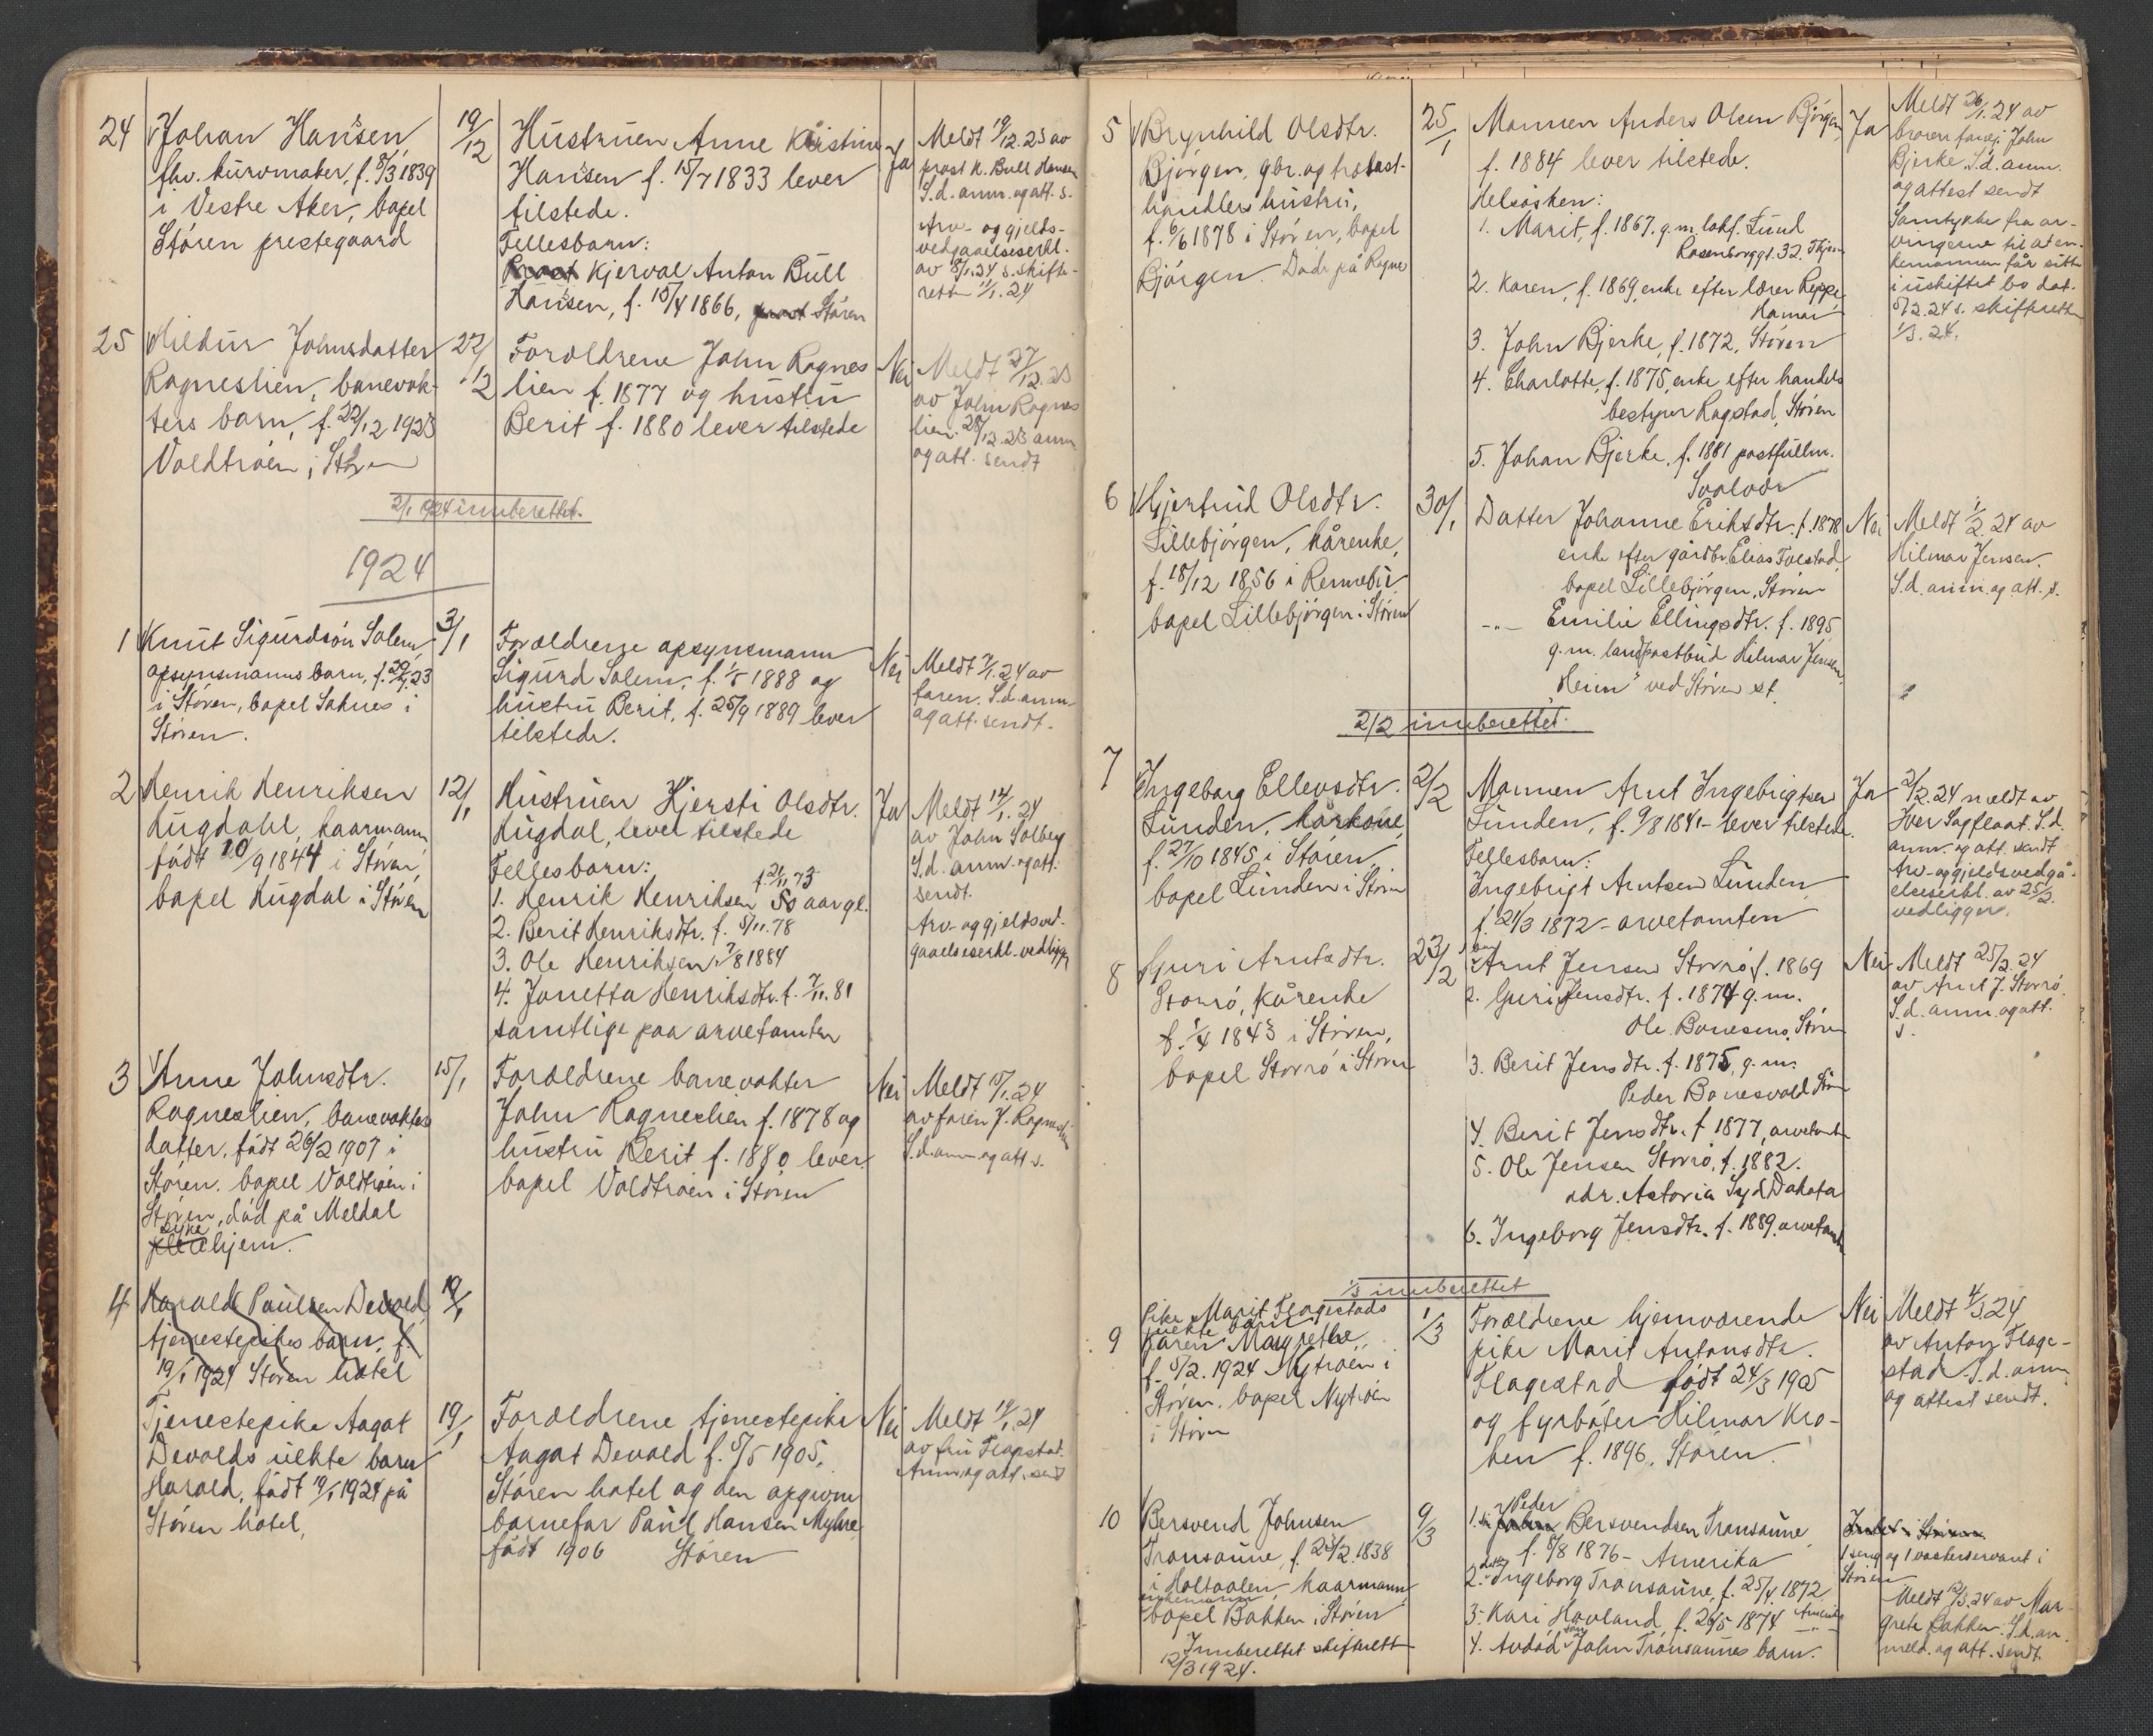 24
Johan Hansen,
fhv. kurvmaker, f. 8/3 1839
i Vestre Aker, bopel
Stören prestegaard
19/12
Hustruen Anne Kristine
Hansen f. 15/7 1833 lever
tilstede.
Fellesbarn:
Prost Kjerval Anton Bull
Hansen, f. 15/4 1866, prost Stören
Ja
Meldt 19/12.23 av
prost K. Bull Hansen
S.d. anm. og att. s.
Arv- og gjelds-
vedgaaelseserkl.
av 8/1.24 s. skifte-
retten 11/1.24
25
Hildur Johnsdatter
Rogneslien, banevok-
ters barn, f. 22/12 1923
Voldtröen i Stören
22/12
Foreldrene John Rognes
lien f. 1877 og hustru
Berit f. 1880 lever tilstede
Nei
Meldt 27/12.23
av John Rognes
lien. 28/12.23 anm
og att. sendt
2/1 1924 innberettet.
1924
1
Knut Sigurdsön Solem
opsynsmanns barn, f. 23
i Stören, bopel Soknes i
Stören.
3/1
Foreldrene opsynsmann
Sigurd Solem, f. 1888 og
hustru Berit, f. 25/9 1889 lever
tilstede.
Nei
Meldt 7/1.24 av
faren. S.d. anm.
og att. sendt.
2
Henrik Henriksen
Hugdahl, kaarmann
födt 10/9 1844 i Stören,
bopel Hugdal i Stören
12/1
Hustruen Kjersti Olsdtr.
Hugdal, lever tilstede
Fellesbarn:
f. 21/11 73
1. Henrik Henriksen 50 aar gl.
2. Berit Henriksdtr. f. 5/11.78
3. Ole Henriksen 7/8 1884
4. Jonetta Henriksdtr. f. 7/11.81
samtlige paa arvetomten
Ja
Meldt 14/1.24
av John Solberg
S.d. anm. og att.
sendt.
Arv- og gjeldsved-
gaaelseserkl. vedligger
3
Anne Johnsdtr.
Rogneslien, banevokters
datter, födt 26/2 1907 i
Stören. bopel Voldtröen i
Stören, död på Meldal
syke
pleiehjem.
15/1
Foreldrene banevokter
John Rogneslien f. 1878 og
hustru Berit f. 1880 lever
bopel Voldtröen i Stören
Nei
Meldt 15/1.24
av faren J. Rogneslien
S.d. anm og att s.
4
Harald Paulsen Devold,
tjenestepikes barn, f.
19/1 1924 Stören hotel
19/1
Tjenestepike Aagot
Devolds uekte barn
Harald, födt 19/1 1924 på
Stören hotel,
19/1
Foreldrene tjenestepike
Aagot Devold f. 5/5 1905,
Stören hotel og den opgivne
barnefar Paul Hansen Myhre,
födt 1906 Stören
Nei
Meldt 19/1.24
av fru Flagstad.
Anm og att. send
5
Brynhild Olsdtr.
Björgen, gbr. og trelast-
handlers hustru,
f. 6/6 1878 i Stören, bopel
Björgen. Döde på Rognes
25/1
Mannen Anders Olsen Björgen
f. 1884 lever tilstede.
Helsösken:
1. Marit, f. 1867, g.m. lokf. Lund
Rosenborggt. 32, Thjem
2. Karen, f. 1869, enke efter lærer Reppe,
Hamar
3. John Bjerke, f. 1872, Stören
4. Charlotte, f. 1875, enke efter handels
bestyrer Rogstad, Stören
5. Johan Bjerke, f. 1881 postfullm.
Svolvær
Ja
Meldt 26/1.24 av
broren John
Bjerke. S.d. anm.
og attest sendt
Samtykke fra ar-
vingerne til at en-
kemannen får sitte
i uskiftet bo dat.
5/2.24 s. skifteretten
1/3.24.
6
Gjertrud Olsdtr.
Lillebjörgen, kårenke,
f. 18/12 1856 i Rennebu,
bopel Lillebjörgen i Stören
30/1
Datter Johanne Eriksdtr. f. 1878
enke efter gårdbr. Elias Folstad,
bopel Lillebjörgen, Stören
-"- Emilie Ellingsdtr. f. 1895
g.m. landpostbud Hilmar Jensen,
"Heim" ved Stören st.
Nei
Meldt 1/2.24 av
Hilmar Jensen.
S.d. anm. og att. s.
2/2 innberettet.
7
Ingeborg Ellevsdtr.
Lunden, kårkone,
f. 27/10 1845 i Stören,
bopel Lunden i Stören
2/2
Mannen Arnt Ingebrigtsen
Lunden, f. 9/8 1841 - lever tilstede.
Fellesbarn:
Ingebrigt Arntsen Lunden
f. 21/3 1872 - arvetomten
Ja
2/2.24 meldt av
Iver Sagflaat. S.d.
anm. og att. sendt
Arv- og gjeldsvedgå-
elseserkl. av 25/2.
vedligger.
8
Guri Arntsdtr.
Storrö, kårenke
f. 1/4 1843 i Stören,
bopel Storrö i Stören
23/2
1. Arnt Jensen Storrö f. 1869
2. Guri Jensdtr. f. 1874 g.m.
Ole Bonesmo, Stören
3. Berit Jensdtr. f. 1875, g.m.
Peder Bonesvold Stören
4. Berit Jensdtr. f 1877, arvetomten
5. Ole Jensen Storrö, f. 1882.
adr. Astoria Syd Dakota
6. Ingeborg Jensdtr. f. 1889. arvetomten
Nei
Meldt 25/2.24
av Arnt J. Storrö.
S.d. anm. og att.
s.
1/3 innberettet
9
Pike Marit Flagestads
uekte barn
Karen Margrethe,
f. 5/2. 1924 Nytröen i
Stören, bopel Nytröen
i Stören
1/3
Foreldrene hjemværende
pike Marit Antonsdtr.
Flagestad födt 24/3 1905
og fyrböter Hilmar Kro-
ken f. 1896, Stören.
Nei
Meldt 4/3 24
av Anton Flage-
stad. S.d. anm.
og attest sendt.
10
Bersvend Johnsen
Transaune, f. 23/2.1838
i Holtaalen, kaarmann,
enkemann
bopel Bakken i Stören
Innberettet skifterett
12/3 1924.
9/3
Peder
1. John Bersvendsen Transaune,
f. 8/8 1876 - Amerika
2. Ingeborg Transaune, f. 25/4 1872
3. Kari Havland f. 26/5 1874 Amerika
4. Avdöd sön John Transaunes barn.
1 seng og 1 vaskeservant i
Stören
Meldt 12/3.24 av Mar-
grete Bakken. S.d. an-
meld. og att. sendt.